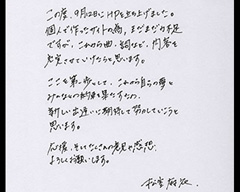 この度、9月12日にHPを立ち上げました。
個人で作ったサイトの為、まだまだの予定
ですが、これから曲・詞など、内容を
充実させていけたらと思います。
ここを第一歩として、これから自分の夢と
みなさんとの約束を果たすため、
新しい出逢いに期待して努力していこうと
思います。
応援、そしてみなさんの意見や感想、
よろしくお願いします。